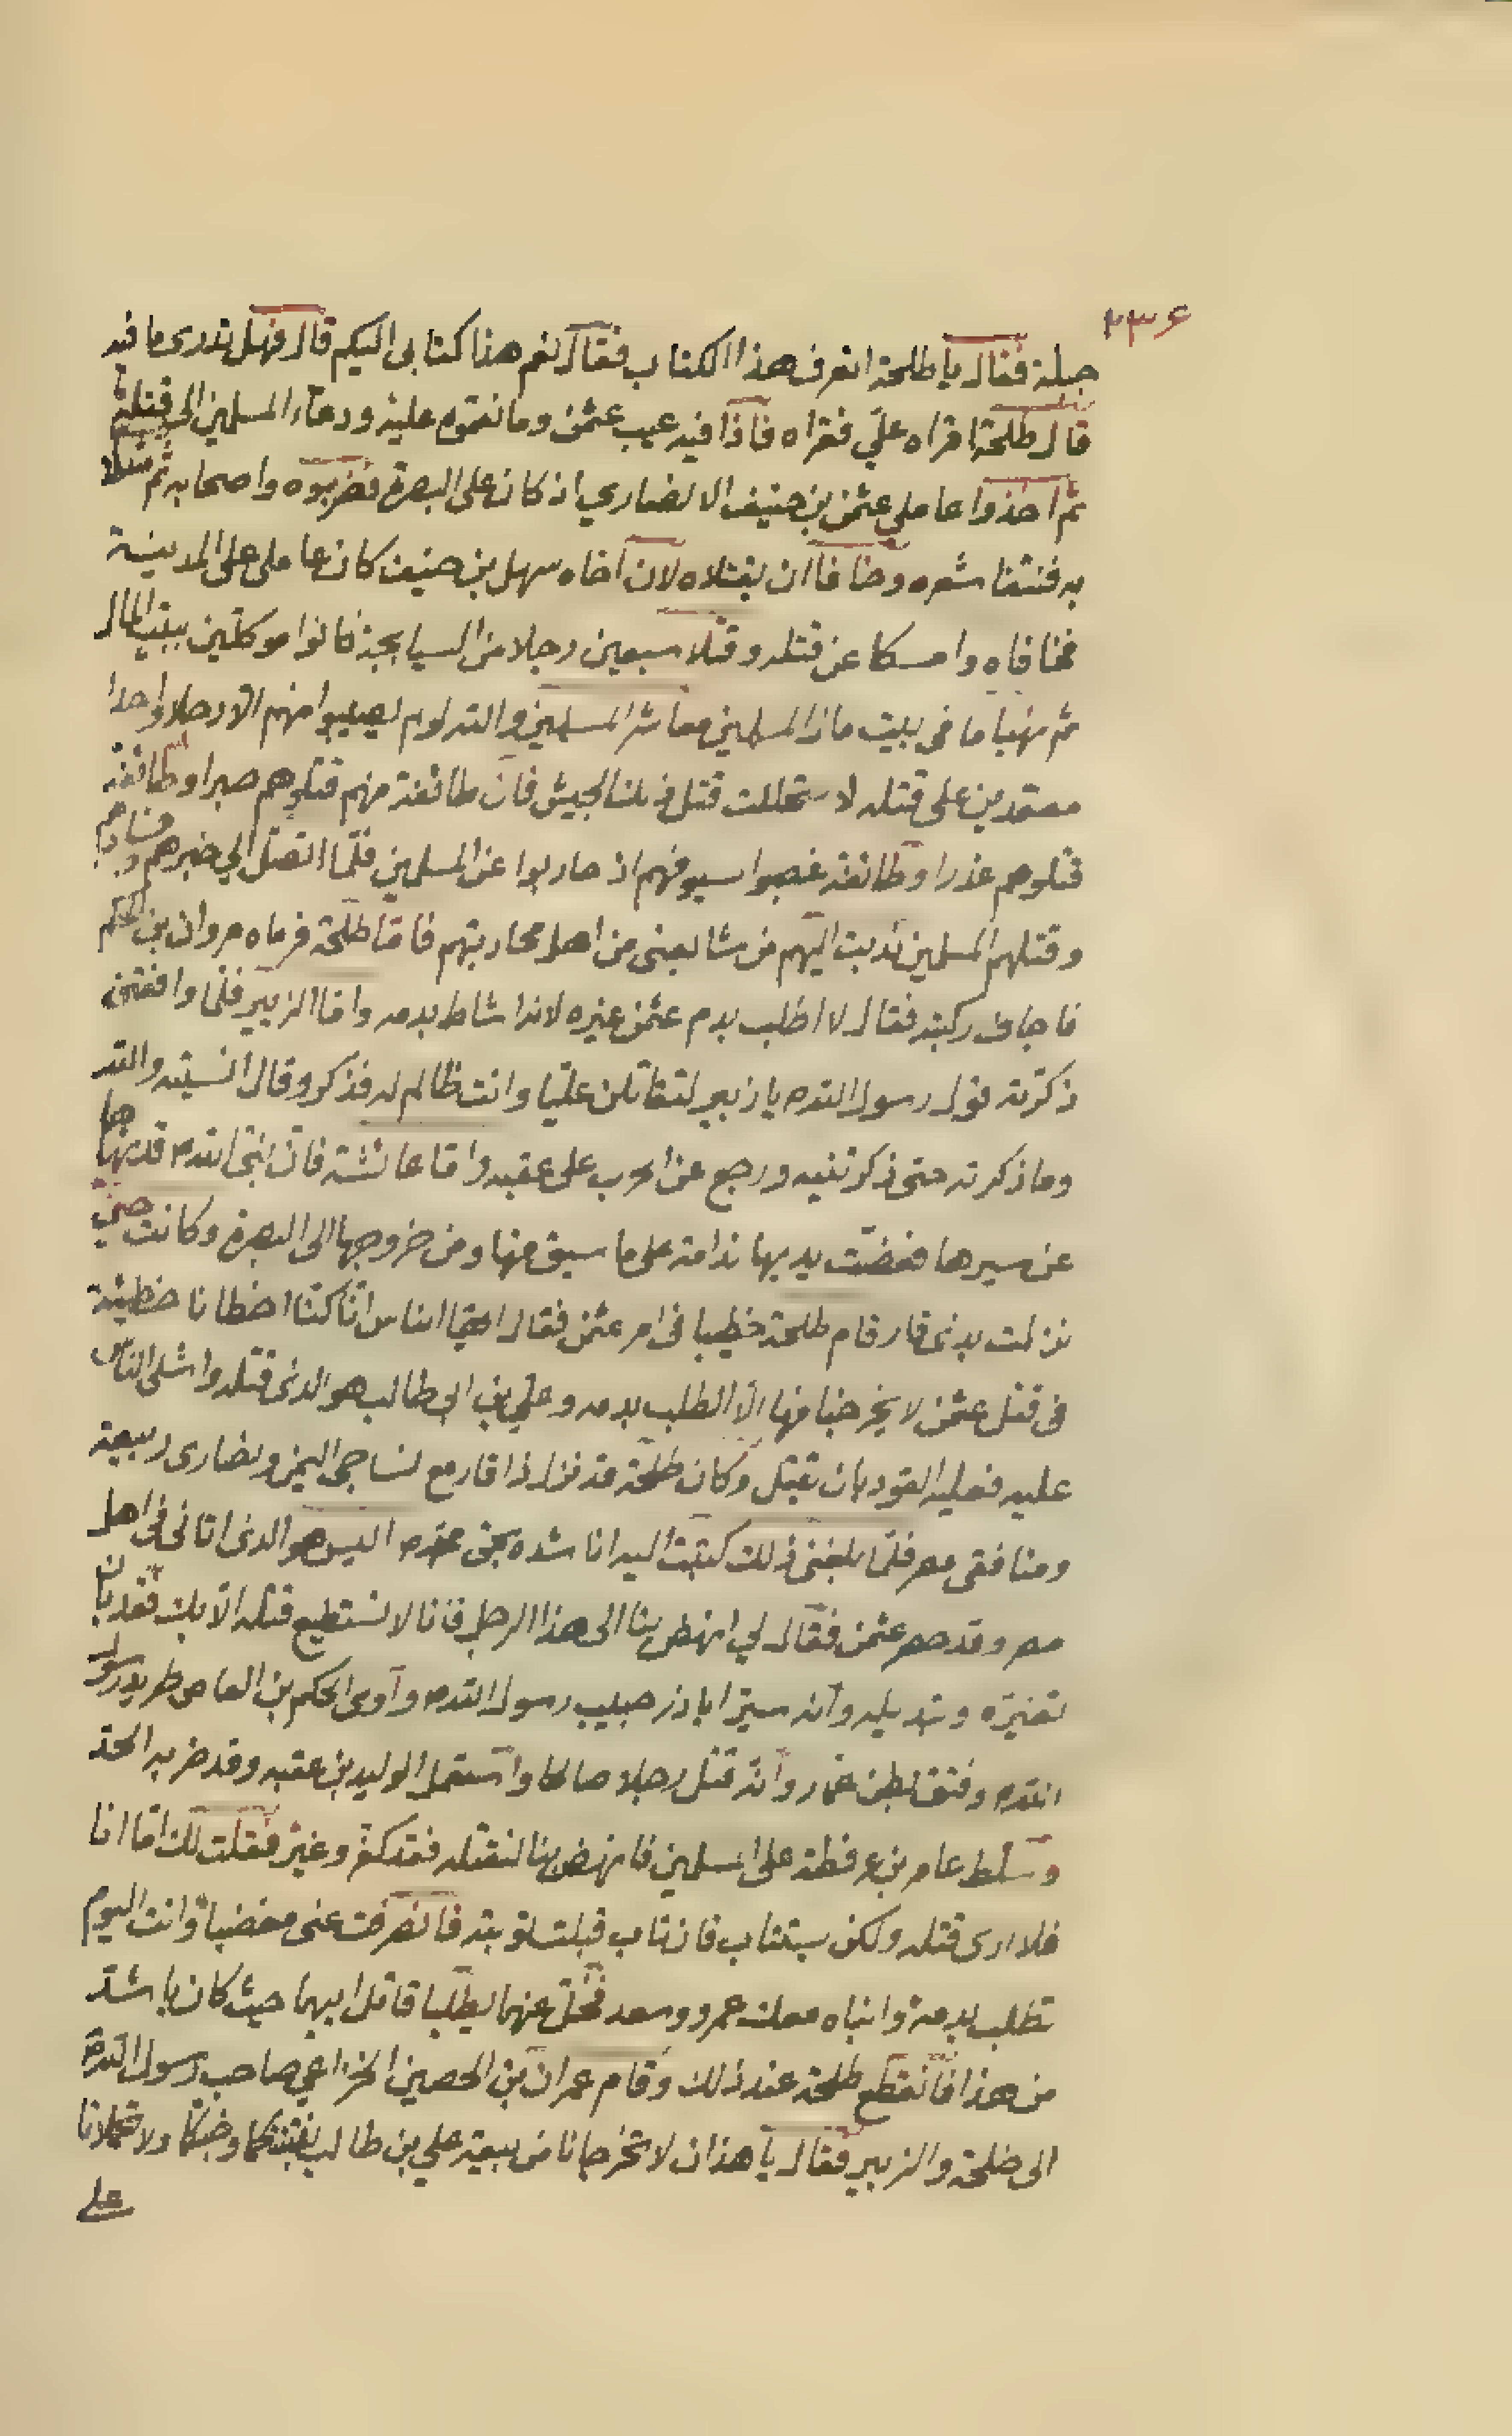 ٢٣٦
جبلة فقال يا طلحة اتعرف هذا الكتاب فقال نعم هذا كتابى اليكم قال فهل تدرى ما فيه
قال طلحة اقراه علي فقراه فاذا فيه عيب عثمن وما نقموه عليه ودعاء المسلمين الى قتله
ثم اخذوا عاملى عثمن بن حنيف الانصاري اذ كان على البصرة فضربوه واصحابه ثم
به فنتفا شعره وخافا ان يقتلاه لان اخاه سهل بن حنيف كان عاملى على المدينة
فخافاه وامسكا عن قتله وقتلا سبعين رجلا من السيابجة كانوا موكلين ببيت المال
ثم نهبا ما فى بيت مال المسلمين معاشر المسلمين والله لو لم يصيبوا منهم الا رجلا واحدا
معتمدين على قتله لاستحللت قتل ذلك الجيش فان طائفة منهم قتلوهم صبرا وطائفة
قتلوهم غدرا وطائفة غصبوا سيوفهم اذ حاربوا عن المسلمين فلما اتصل الي خبرهم وفسادهم
وقتلهم المسلمين ندبت اليهم من شايعنى من اهل محاربتهم فاما طلحة فرماه مروان بن الحكم
فاجاف ركبته فقال لا اطلب بدم عثمن غيره لانه اشاط بدمه واما الزبير فلما وافقنى
ذكرته قول رسول الله يا زبير لتقاتلن عليا وانت ظالم له فذكر وقال انسيته والله
وما ذكرته حتى ذكرتنيه ورجع عن الحرب على عقبه واما عائشة فان نبى الله قد نهاها
عن سيرها فعضت يديها ندامة على ما سبق منها ومن خروجها الى البصرة وكانت حين
نزلت بذى قار قام طلحة خطيبا فى امر عثمن فقال ايها الناس انا كنا اخطانا خطيئة
فى قتل عثمن لا يخرجنا منها الا الطلب بدمه وعلي بن ابى طالب هو الذى قتله واشلى الناس
عليه فعليه القود بان يقتل وكان طلحة قد نزل ذا قار مع نساجى اليمن ونصارى ربيعة
ومنافقى مصر فلما بلغنى ذلك كتبت اليه اناشده بحق محمد اليس هو الذى اتانى فى اهل
مصر وقد حصر عثمن فقال لي انهض بنا الى هذا الرجل فانا لا نستطيع قتله الا بك فقد بان لك
تغيره وتبديله وانه سير اباذر حبيب رسول الله وآوى الحكم بن العاص طريد رسول
الله وفتق بطن عمار وانه قتل رجلا صالحا واستعمل الوليد بن عقبه وقد ضربه الحد
وسلط عامر بن عرفطة على المسلمين فانهض بنا لنقتله فقد كفر وغير فقلت لك اما انا
فلا ارى قتله ولكن يستتاب فان تاب قبلت توبته فانصرفت عنى مغضبا وانت اليوم
تطلب بدمه وابناه معك عمرو وسعد فخل عنهما ليطلبا قاتل ابيهما حيث كان باشد
من هذا فانقطع طلحة عند ذلك وقام عمران بن الحصين الخزاعي صاحب رسول الله
الى طلحة والزبير فقال يا هذان لا تخرجانا من بيعة علي بن طالب ولا تحملانا
على